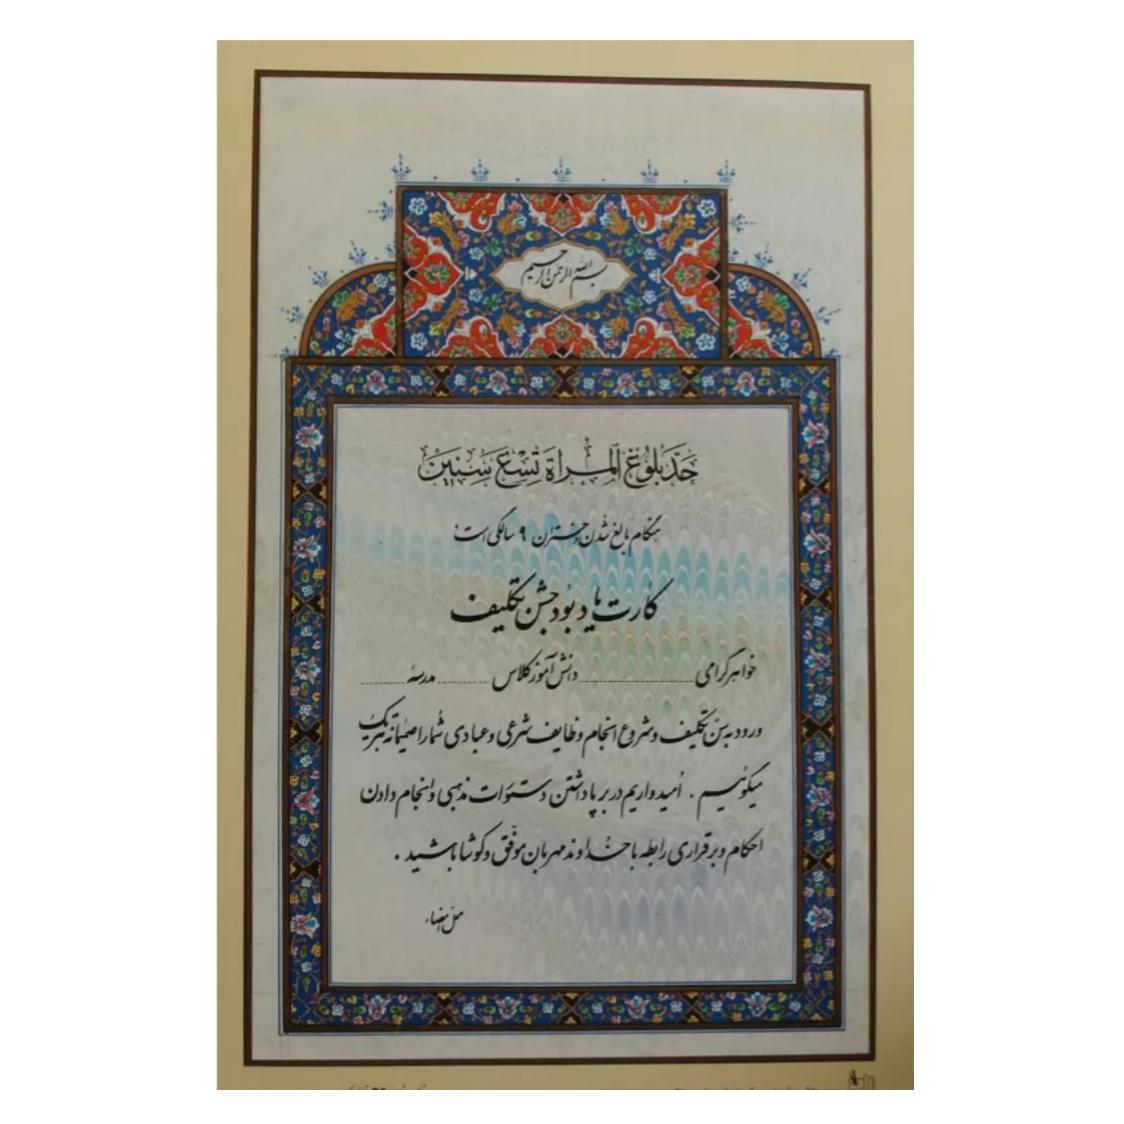 بسم الله الرحمن الرحیم
حَدّ بُلُوغ الْمَراَة تِسْعَ سِنین
هنگام بالغ شدن دختران ۹ سالگی است
کارت یادبود جشن تکلیف
خواهر گرامی ........................ دانش آموز کلاس ............ مدرسهٔ ................
ورود به سن تکلیف و شروع انجام وظایف شرعی و عبادی شما را صمیمانه تبریک
میگوئیم . اُمیدواریم در برپا داشتن دستورات مذهبی و انجام دادن
احکام و برقراری رابطه با خداوند مهربان موفّق و کوشا باشید .
محل امضاء